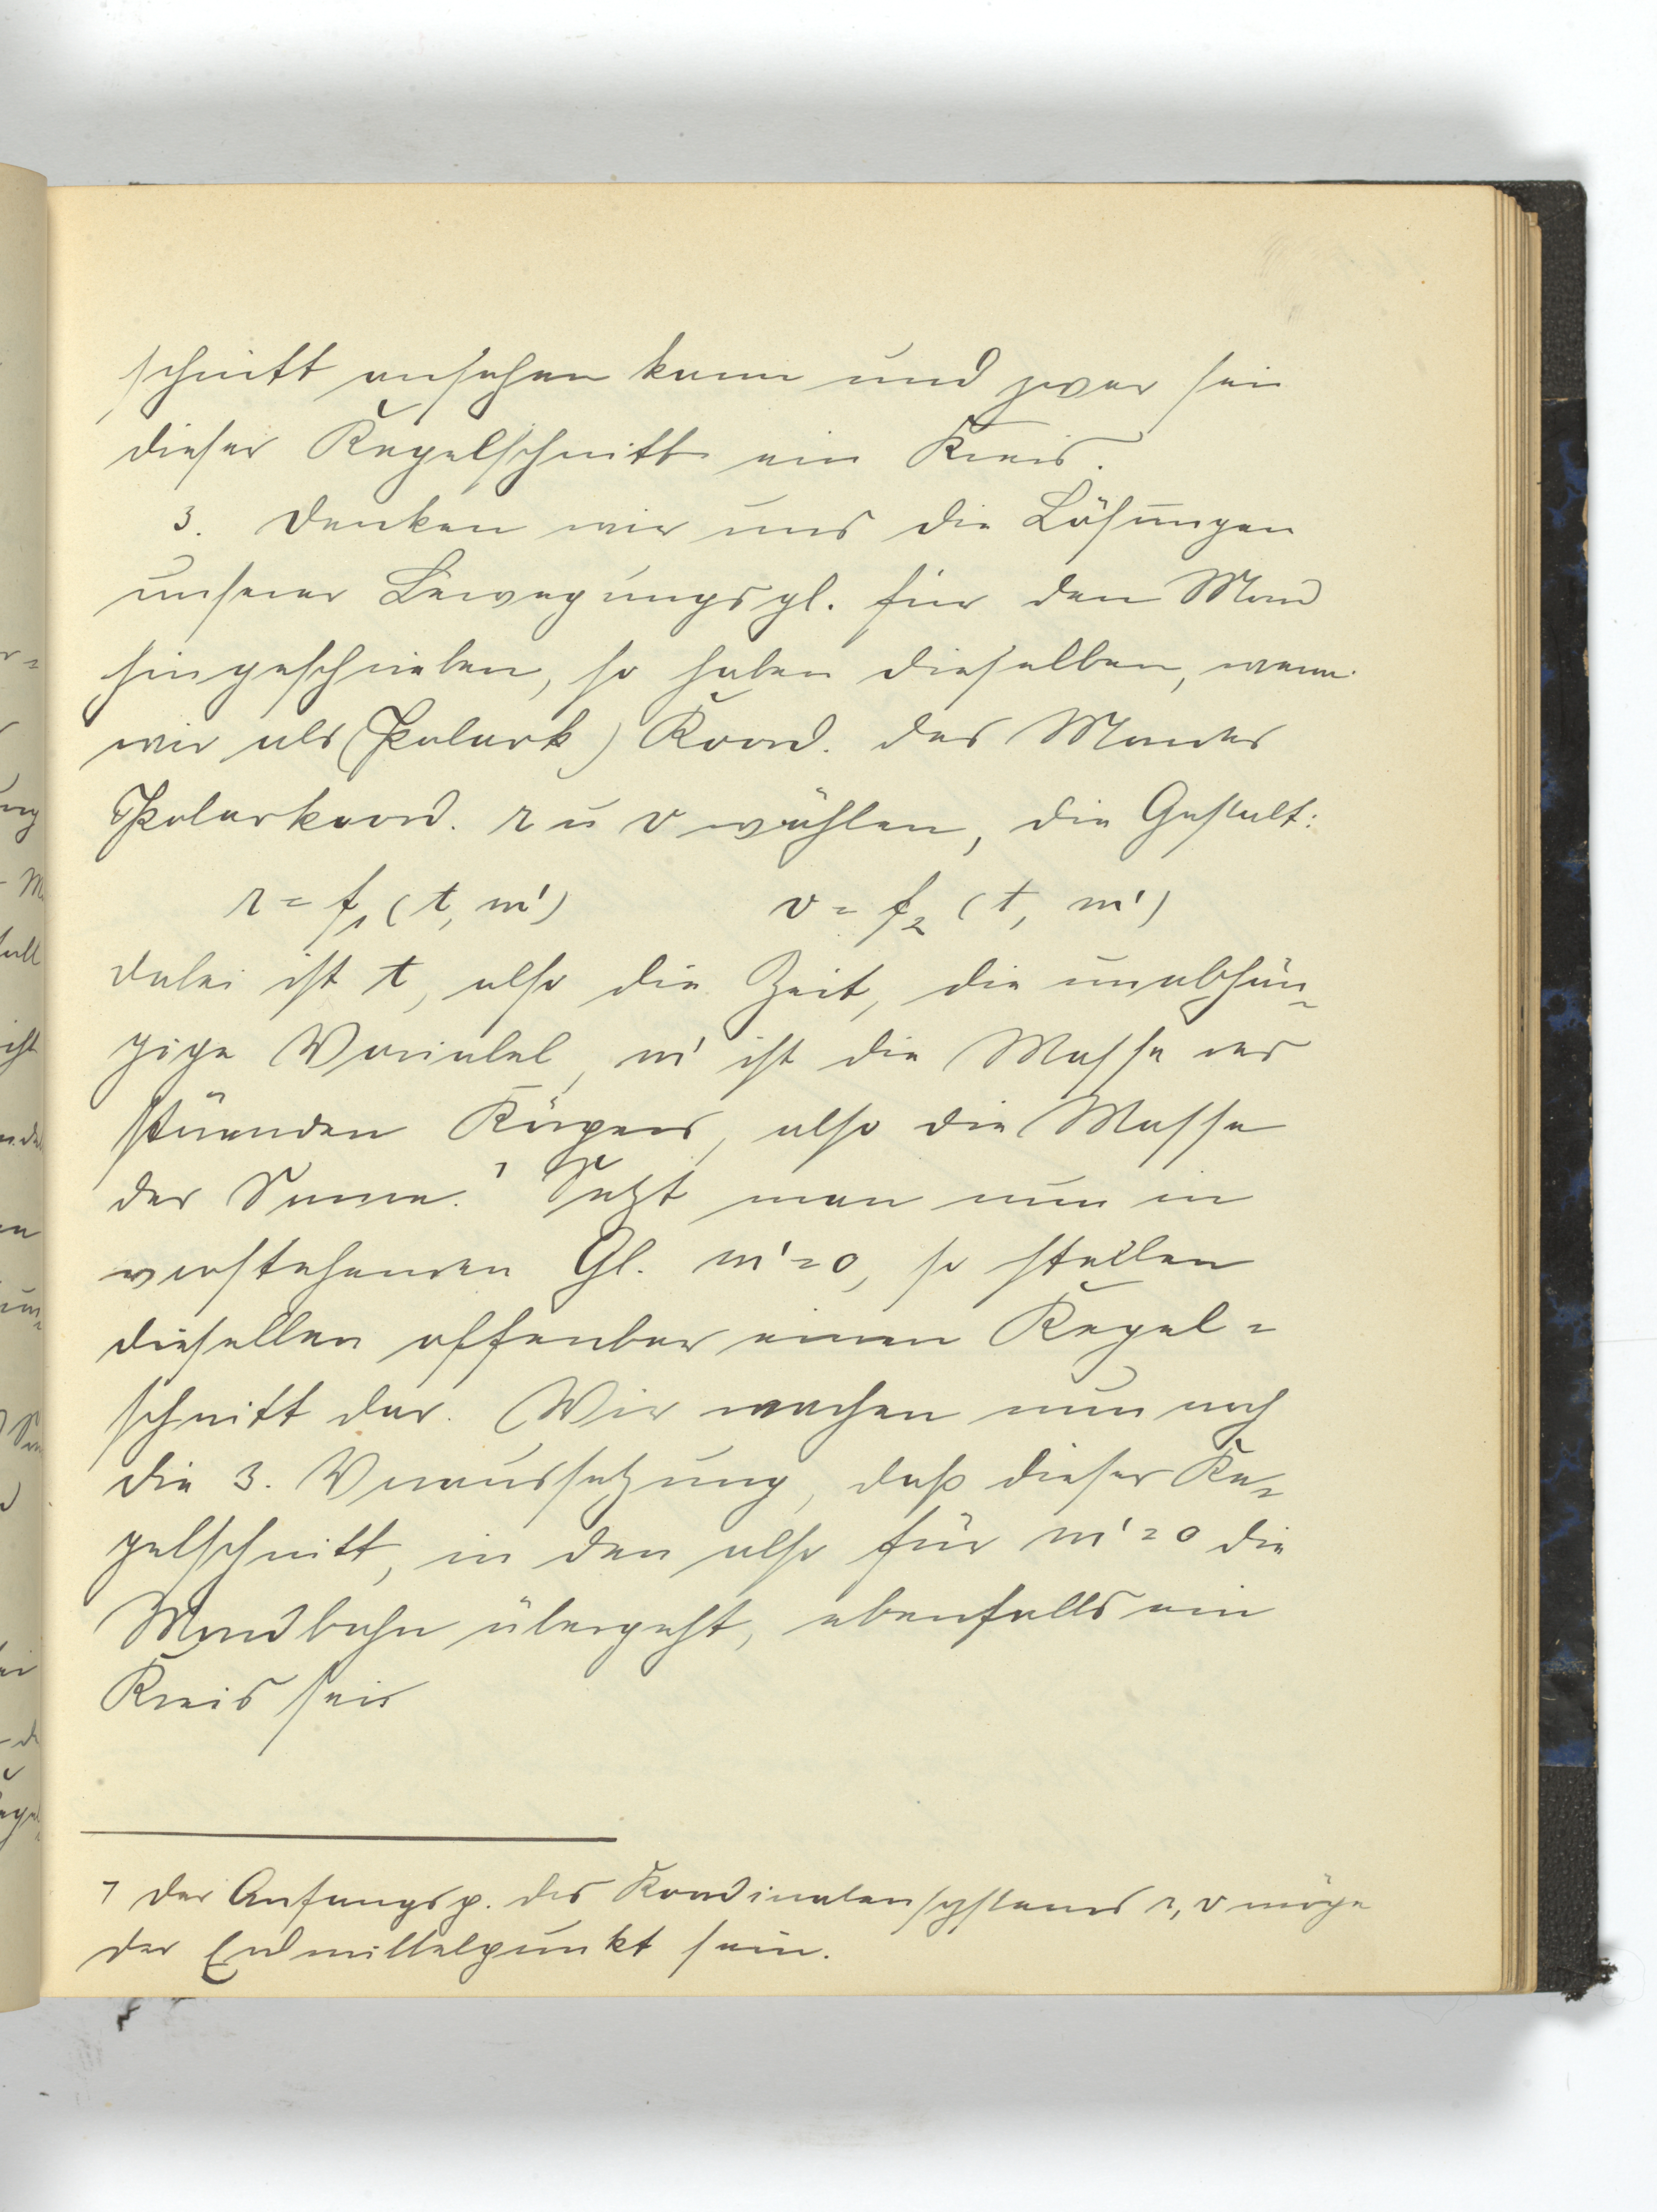 schnitt ansehen kann und zwar sei
dieser Kegelschnitt ein Kreis.
3. Denken wir uns die Lösungen
unserer Bewegungsgl. für den Mond
hingeschrieben, so haben dieselben, wenn
wir als (Polark) Koord. des Mondes
Polarkoord. r u v wählen, die Gestalt:
r = f₁ (t, m') v = f₂ (t, m')
dabei ist t, also die Zeit, die unabhän=
gige Variabel, m' ist die Masse des
störenden Körpers, also die Masse
der Sonne. ⁊ Setzt man nun in
vorstehenden Gl. m'=0, so stellen
dieselben offenbar einen Kegel=
schnitt dar. Wir machen nun noch
die 3. Voraussetzung, daß dieser Ke=
gelschnitt, in den also für m'=0 die
Mondbahn übergeht, ebenfalls ein
Kreis sei
⁊ der Anfangsp. des Koordinatensystems r, v möge
der Erdmittelpunkt sein.